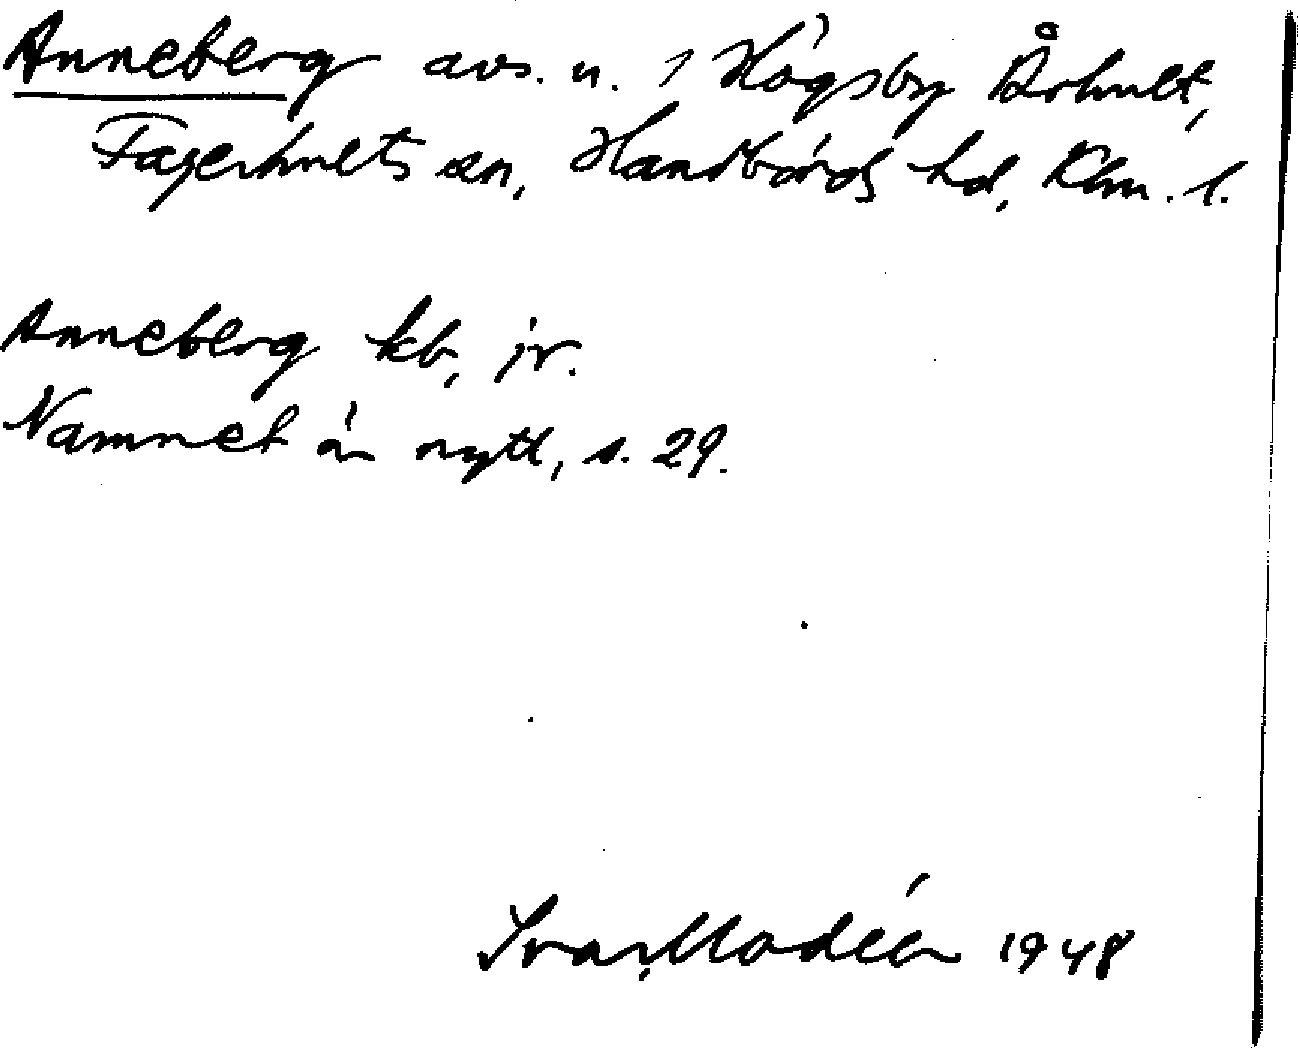 Anneberg avs. u. 1 Högsby Århult,
Fagerhults sn, Handbörds hd, Klm. l.
Anneberg kb, jr.
Namnet är nytt, s. 29.
Ivar Modéer 1948